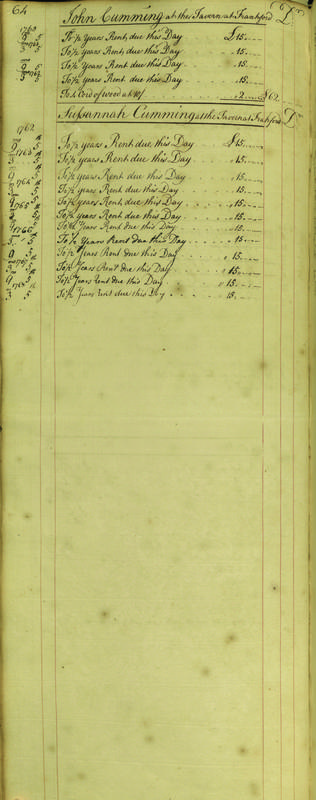 64
John Cumming at the Tavern at Frankford Dr
To ½ Years Rent, due this Day £15
To ½ Years Rent, due this Day 15
To ½ Years Rent, due this Day 15
To ½ Years Rent due this Day 15
Cord of wood at 2 £62
Sussannah Cumming at the Tavern at Frankford Dr
1762
To ½ years Rent due this Day £15
To ½ years Rent due this Day 15
To ½ years Rent due this Day 15
To ½ years Rent due this Day 15
To ½ years Rent due this Day 15
To ½ years Rent due this Day 15
To ½ Years Rent due this Day 15
To ½ Years Rent due this Day 15
To ½ Years Rent due this Day 15
To ½ Years Rent due this Day 15
To ½ Years Rent due this Day 15
To ½ Years Rent due this Day 15